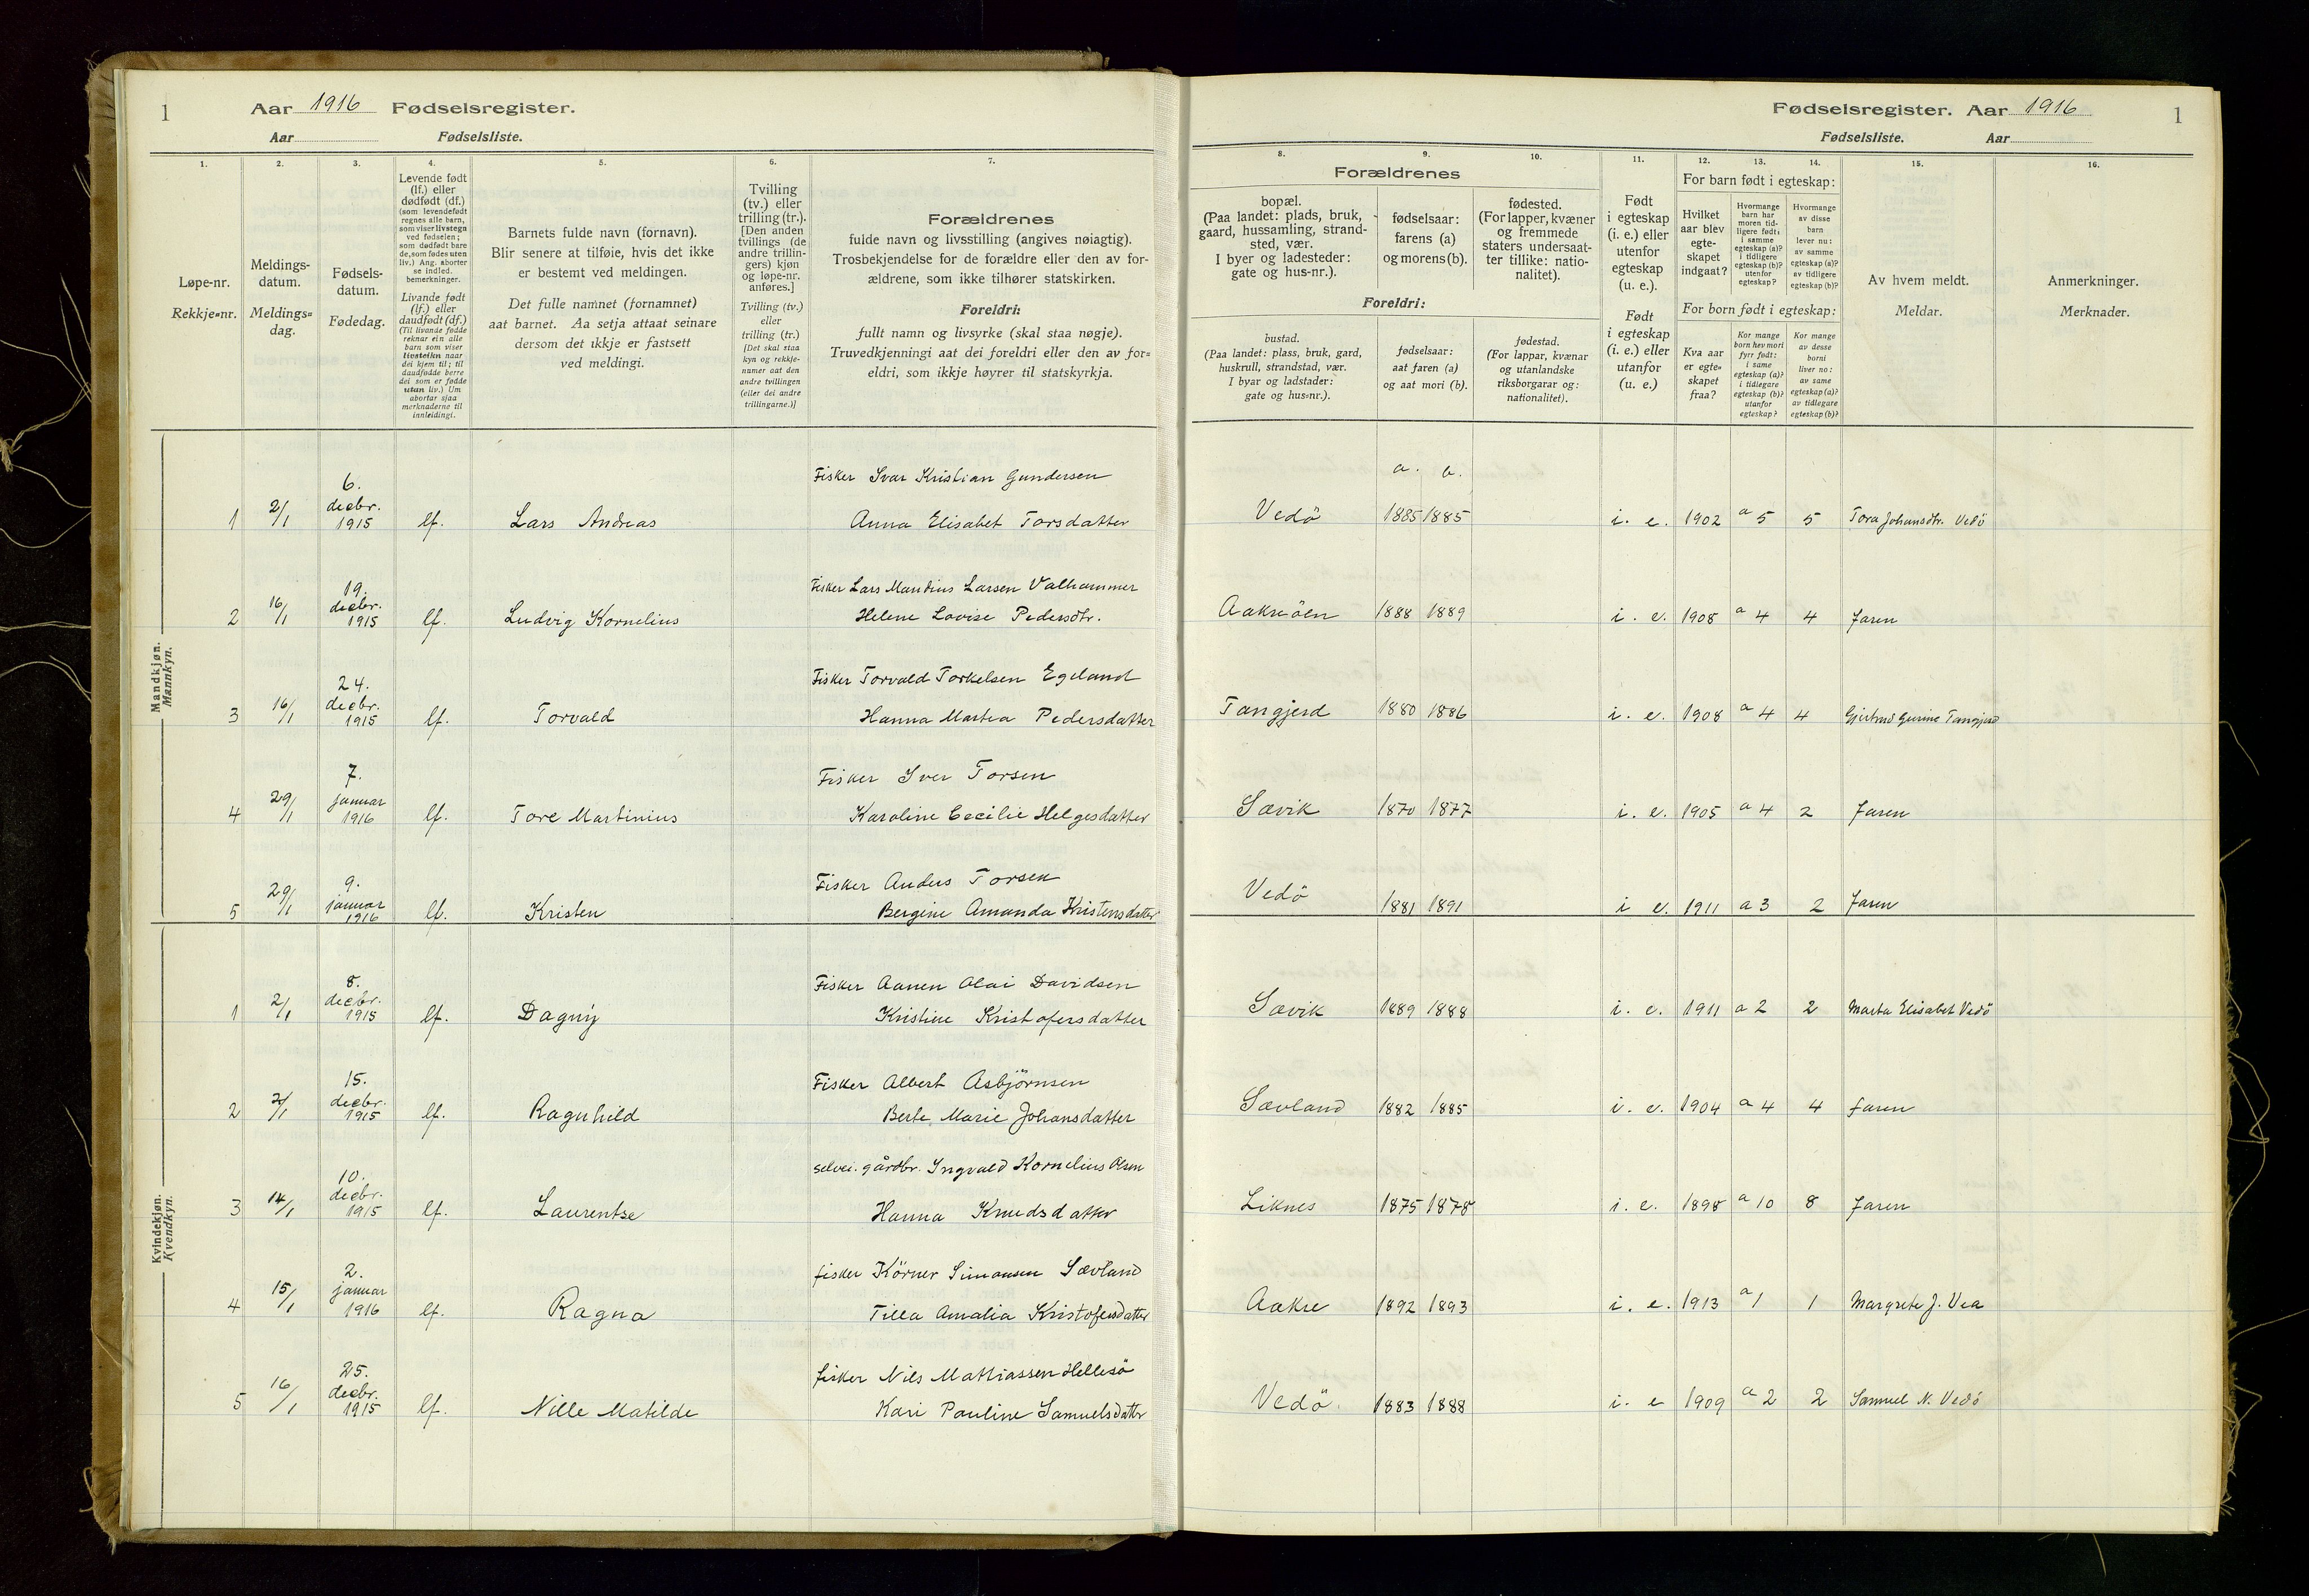 1 Aar 1916 Fødselsregister.
Aar Fødselsliste.
1. 2. 3. 4. 5. 6. 7.
Løpe-nr.
Rekkje=nr.
Meldings-
datum.
Meldings=
dag.
Fødsels-
datum.
Fødedag.
Levende født
(lf.) eller
dødfødt (df.)
(som levendefødt
regnes alle barn,
som viser livstegn
ved fødselen;
som dødfødt bare
de, som fødes uten
liv.) Ang. aborter
se indled.
bemerkninger.
Livande født
(lf.) eller
daudfødt (df.)
(Til livande fødde
reknar ein alle
barn som viser
livsteikn naar
dei kjem til; til
daudfødde berre
dei som er fødde
utan liv.) Um
abortar sjaa
merknaderne til
innleidingi.
Barnets fulde navn (fornavn).
Blir senere at tilføie, hvis det ikke
er bestemt ved meldingen.
Det fulle namnet (fornamnet)
aat barnet. Aa setja attaat seinare
dersom det ikkje er fastsett
ved meldingi.
Tvilling
(tv.) eller
trilling (tr.).
[Den anden
tvillings (de
andre trillin-
gers) kjøn
og løpe-nr.
anføres.]
Tvilling (tv.)
eller
trilling (tr.)
[Det skal staa
kyn og rekkje-
numer aat den
andre tvillingen
(eller dei andre
trillingarne.)]
Forældrenes
fulde navn og livsstilling (angives nøiagtig).
Trosbekjendelse for de forældre eller den av for-
ældrene, som ikke tilhører statskirken.
Foreldri:
fullt namn og livsyrke (skal staa nøgje).
Truvedkjenningi aat dei foreldri eller den av for=
eldri, som ikkje høyrer til statskyrkja.
Mandkjøn.
Mannkyn.
6.
Fisker Ivar Kristian Gundersen
1 2/1 decbr. 1915 lf. Lars Andreas Anna Elisabet Torsdatter
19.
Fisker Lars Mandius Larsen Valhammer
2 16/1 decbr. 1915 lf. Ludvig Kornelius Helene Lovise Pedersdtr.
24.
Fisker Torvald Torkelsen Egeland
3 16/1 decbr. 1915 lf. Torvald Hanna Martea Pedersdatter
7.
Fisker Iver Torsen
4 29/1 januar 1916 lf. Tore Martinius Karoline Cecilie Helgesdatter
9.
Fisker Anders Torsen
5 29/1 januar 1916 lf. Kristen Bergine Amanda Kristensdatter
Kvindekjøn.
Kvendkyn.
8.
Fisker Aanen Olai Davidsen
1 2/1 decbr. 1915 lf. Dagny Kristine Kristofersdatter
15.
Fisker Albert Asbjörnsen
2 2/1 decbr. 1915 lf. Ragnhild Berte Marie Johansdatter
10.
selvei. gårdbr. Ingvald Kornelius Olsen
3 14/1 decbr. 1915 lf. Laurentse Hanna Knudsdatter
2.
fisker Körner Simonsen Sævland
4 15/1 januar 1916 lf. Ragna Tilla Amalia Kristofersdatter
25.
fisker Nils Mathiassen Hellesö
5 16/1 decbr. 1915 lf. Nille Matilde Kari Pauline Samuelsdatter
Fødselsregister. Aar 1916 1
Fødselsliste. Aar
8. 9. 10. 11. 12. 13. 14. 15. 16.
Forældrenes
bopæl.
(Paa landet: plads, bruk,
gaard, hussamling, strand-
sted, vær.
I byer og ladesteder:
gate og hus-nr.).
fødselsaar:
farens (a)
og morens (b).
fødested.
(For lapper, kvæner
og fremmede
staters undersaat-
ter tillike: natio-
nalitet).
Foreldri:
bustad.
(Paa landet: plass, bruk, gard,
huskrull, strandstad, vær.
I byar og ladstader:
gate og hus=nr.).
fødselsaar:
aat faren (a)
og aat mori (b).
fødestad.
(For lappar, kvænar
og utanlandske
riksborgarar og:
nationalitet).
Født
i egteskap
(i. e.) eller
utenfor
egteskap
(u. e.).
Født
i egteskap
(i. e.) eller
utanfor
(u. e.)
For barn født i egteskap:
Hvilket
aar blev
egte-
skapet
indgaat?
Hvormange
barn har
moren tid-
ligere født:
i samme
egteskap (a)?
i tidligere
egteskap (b)?
utenfor
egteskap?
Hvormange
av disse
barn
lever nu:
av samme
egteskap (a)?
av tidligere
egteskap (b)?
For born født i egteskap:
Kva aar
er egte=
skapet
fraa?
Kor mange
born hev mori
fyrr født:
i same
egteskap (a)?
i tidlegare
egteskap (b)?
utanfor
egteskap?
Kor mange
av desse
borni
liver no:
av same
egteskap (a)?
av tidlegare
egteskap (b)?
Av hvem meldt.
Meldar.
Anmerkninger.
Merknader.
a. b.
Vedö 1885 1885 i. e. 1902 a 5 5 Tora Johansdtr. Vedö
Aakreöen 1888 1889 i. e. 1908 a 4 4 Faren
Tangjerd 1880 1886 i. e. 1908 a 4 4 Gjertrud Gurine Tangjerd
Sævik 1870 1877 i. e. 1905 a 4 2 Faren
Vedö 1881 1891 i e. 1911 a 3 2 Faren
Sævik 1889 1888 i. e. 1911 a 2 2 Marta Elisabet Vedö
Sævland 1882 1885 i. e. 1904 a 4 4 faren
Liknes 1875 1878 i. e. 1898 a 10 8 Faren
Aakre 1892 1893 i. e. 1913 a 1 1 Margrete J. Vea
Vedö 1883 1888 i. e 1909 a 2 2 Samuel N. Vedö